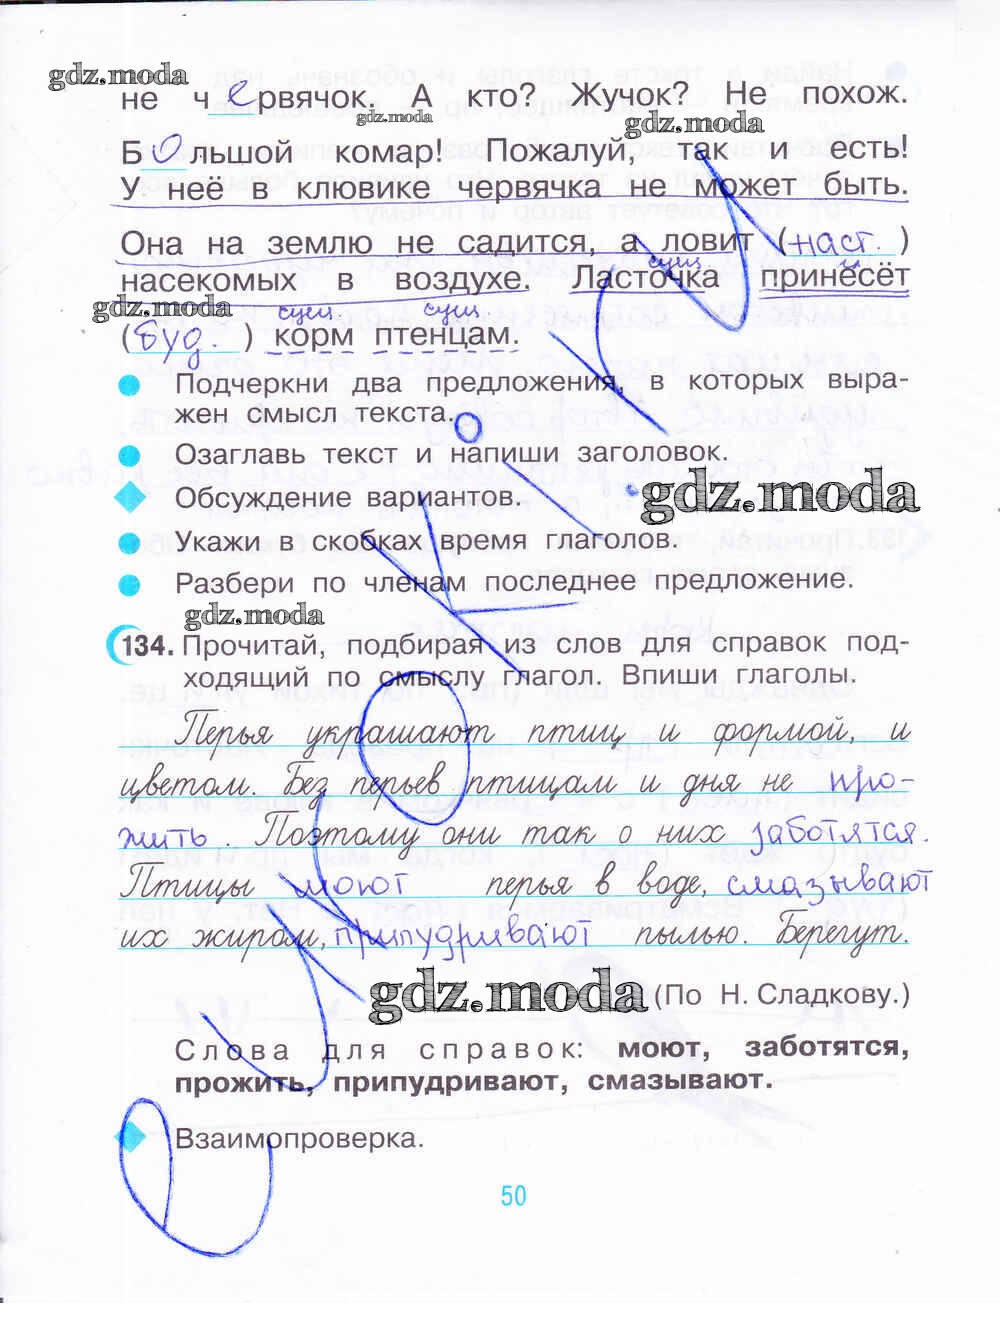 gdz.moda
не ч е рвячок. А кто? Жучок? Не похож.
gdz.moda
gdz.moda
Б о льшой комар! Пожалуй, так и есть!
У неё в клювике червячка не может быть.
Она на землю не садится, а ловит (наст. )
сущ
насекомых в воздухе. Ласточка принесёт
gdz.moda
сущ. сущ.
(буд. ) корм птенцам.
Подчеркни два предложения, в которых выра-
жен смысл текста.
Озаглавь текст и напиши заголовок.
Обсуждение вариантов.
gdz.moda
Укажи в скобках время глаголов.
Разбери по членам последнее предложение.
gdz.moda
134. Прочитай, подбирая из слов для справок под-
ходящий по смыслу глагол. Впиши глаголы.
Перья украшают птиц и формой, и
цветом. Без перьев птицам и дня не про-
жить . Поэтому они так о них заботятся.
Птицы моют перья в воде, смазывают
их жиром, припудривают пылью. Берегут.
gdz.moda
(По Н. Сладкову.)
Слова для справок: моют, заботятся,
прожить, припудривают, смазывают.
Взаимопроверка.
50